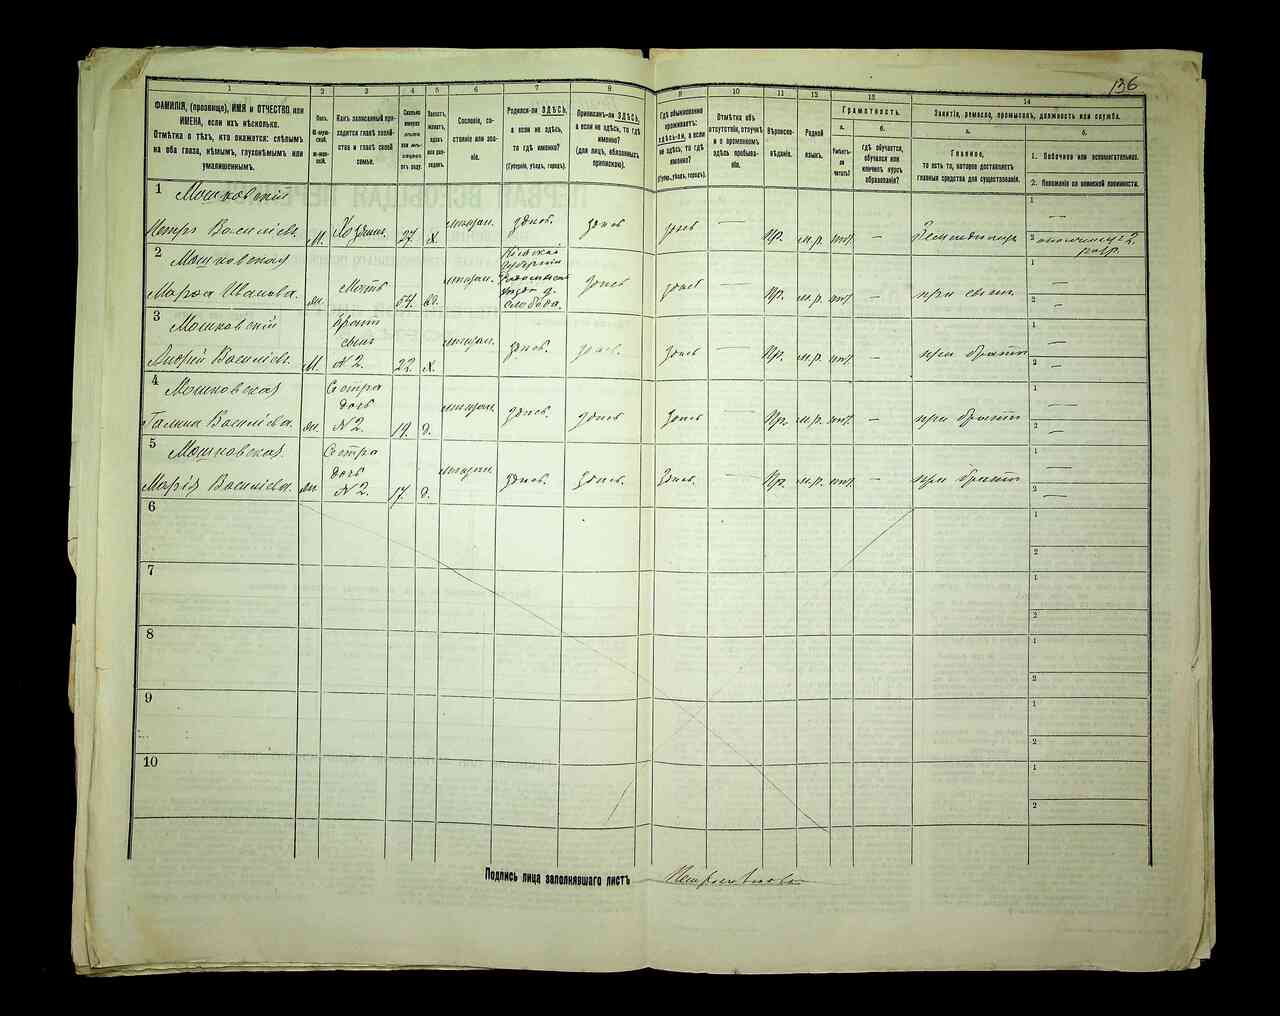 136
1 2 3 4 5 6 7 8 9 10 11 12 13 14
ФАМИЛІЯ, (прозвище), ИМЯ и ОТЧЕСТВО или
ИМЕНА, если ихъ нѣсколько.
Отмѣтка о тѣхъ, кто окажется: слѣпымъ
на оба глаза, нѣмымъ, глухонѣмымъ или
умалишеннымъ.
Полъ.
М-муж-
ской.
Ж-жен-
ской.
Какъ записанный при-
ходится главѣ хозяй-
ства и главѣ своей
семьи.
Сколько
минуло
лѣтъ
или мѣ-
сяцевъ
отъ роду.
Холостъ,
женатъ,
вдовъ
или раз-
веденъ.
Сословіе, со-
стояніе или зва-
ніе.
Родился-ли ЗДѢСЬ,
а если не здѣсь,
то гдѣ именно?
(Губернія, уѣздъ, городъ).
Приписанъ-ли ЗДѢСЬ,
а если не здѣсь, то гдѣ
именно?
(для лицъ, обязанныхъ
припискою).
Гдѣ обыкновенно
проживаетъ:
здѣсь-ли, а если
не здѣсь, то гдѣ
именно?
(Губер., уѣздъ, городъ).
Отмѣтка объ
отсутствіи, отлучкѣ
и о временномъ
здѣсь пребыва-
ніи.
Вѣроиспо-
вѣданіе.
Родной
языкъ.
Грамотность.
а.
Умѣетъ-
ли
читать?
б.
гдѣ обучается,
обучался или
кончилъ курсъ
образованія?
Занятіе, ремесло, промыселъ, должность или служба.
а.
Главное,
то есть то, которое доставляетъ
главныя средства для существованія.
б.
1. Побочное или вспомогательное.
2. Положеніе по воинской повинности.
1 Мошковскій
Петръ Василіевъ. М. Хозяинъ. 27. Х. здѣсь. здѣсь здѣсь — Пр. м.р. — 1 —
2 ополченецъ 2 разр.
2 Мошковская
Марѳа Иванова. ж. Мать 54. Кіевская
губернія
уѣздъ д.
слобода. здѣсь здѣсь — Пр. м.р. — при сынѣ 1 —
2 —
3 Мошковскій
Андрей Василіевъ. М. братъ
сынъ
№ 2. 22. Х. здѣсь. здѣсь. здѣсь — Пр. м.р. — при братѣ 1 —
2 —
4 Мошковская
Галина Василіева. ж. Сестра
дочь
№ 2. 19. д. здѣсь. здѣсь здѣсь — Пр. м.р. — при братѣ 1 —
2 —
5 Мошковская.
Марія Василіева. ж. Сестра
дочь
№ 2. 17. д. здѣсь. здѣсь. Здѣсь. — Пр. м.р. — при братѣ 1 —
2 —
6 1
2
7 1
2
8 1
2
9 1
2
10 1
2
Подпись лица заполнявшаго листъ